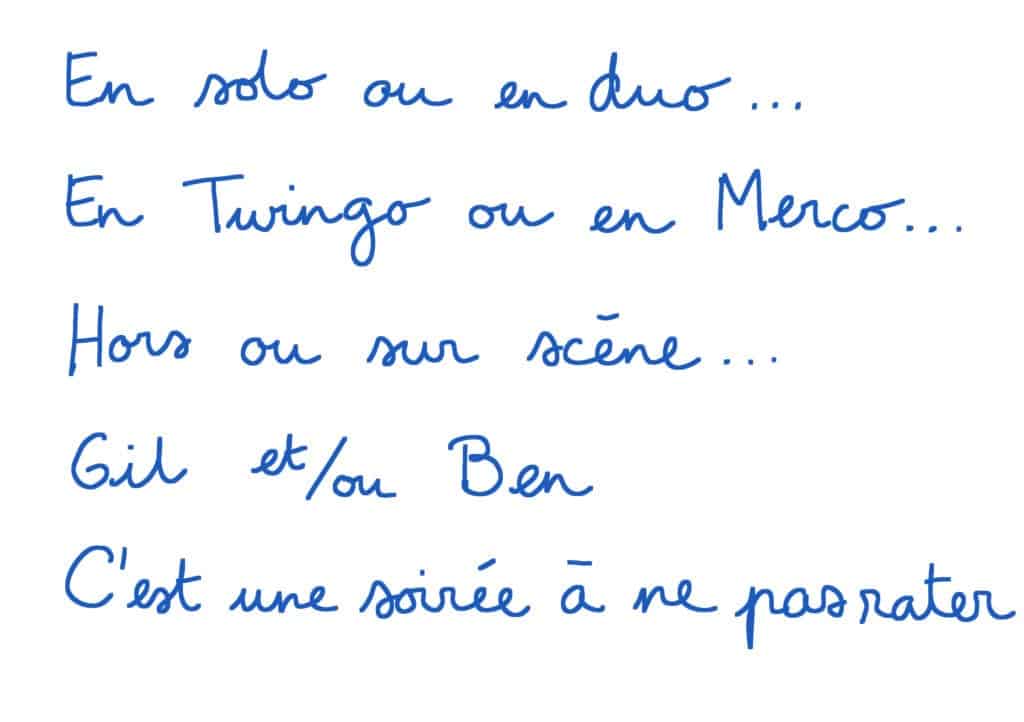 En solo ou en duo...
En Twingo ou en Merco...
Hors ou sur scène...
Gil et/ou Ben
C'est une soirée à ne pas rater